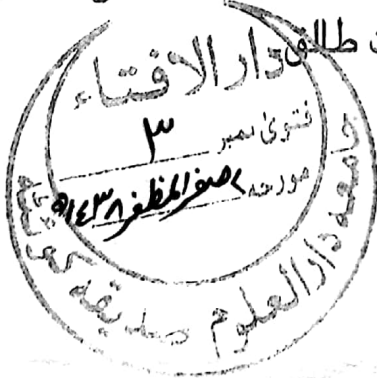 طالق
دار الافتاء
فتویٰ نمبر ۳
مورخہ ۲ صفر المظفر ۱۴۳۸ھ
جامعہ دارالعلوم صدیقیہ